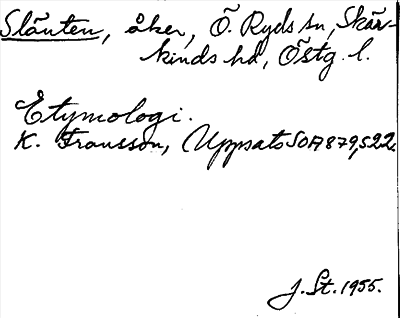 Slänten, åker, Ö. Ryds sn, Skär-
kinds hd, Östg. l.
Etymologi.
K. Fransson, Uppsats SOA 879,522.
J. St. 1955.